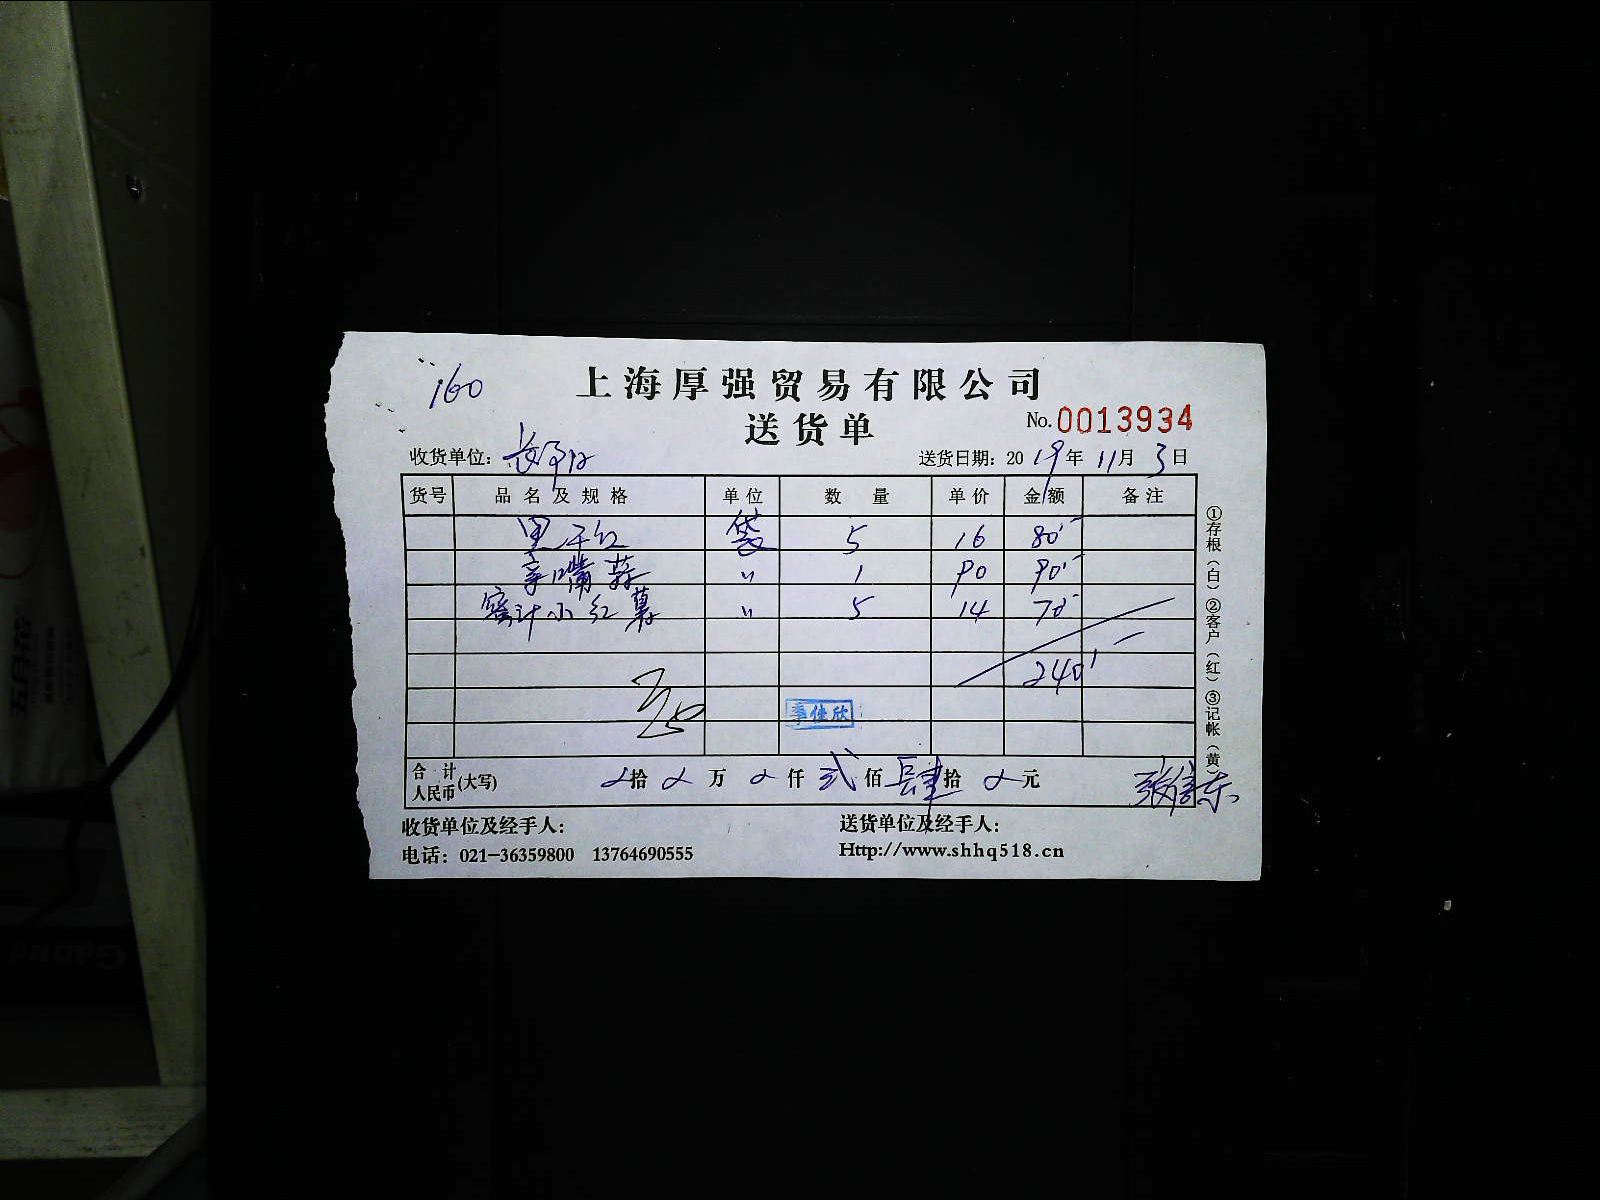 160
上海厚强贸易有限公司
送货单
No.0013934
收货单位：
送货日期：2019年11月3日
货号 品名及规格 单位 数量 单价 金额 备注
里干红 袋 5 16 80
亲嘴蒜 〃 1 90 90
蜜汁小红薯 〃 5 14 70
240
李佳欣
合计人民币(大写) 拾 万 仟 弍佰 肆拾 元
①存根（白）②客户（红）③记帐（黄）
收货单位及经手人：
送货单位及经手人：
电话：021-36359800 13764690555
Http://www.shhq518.cn